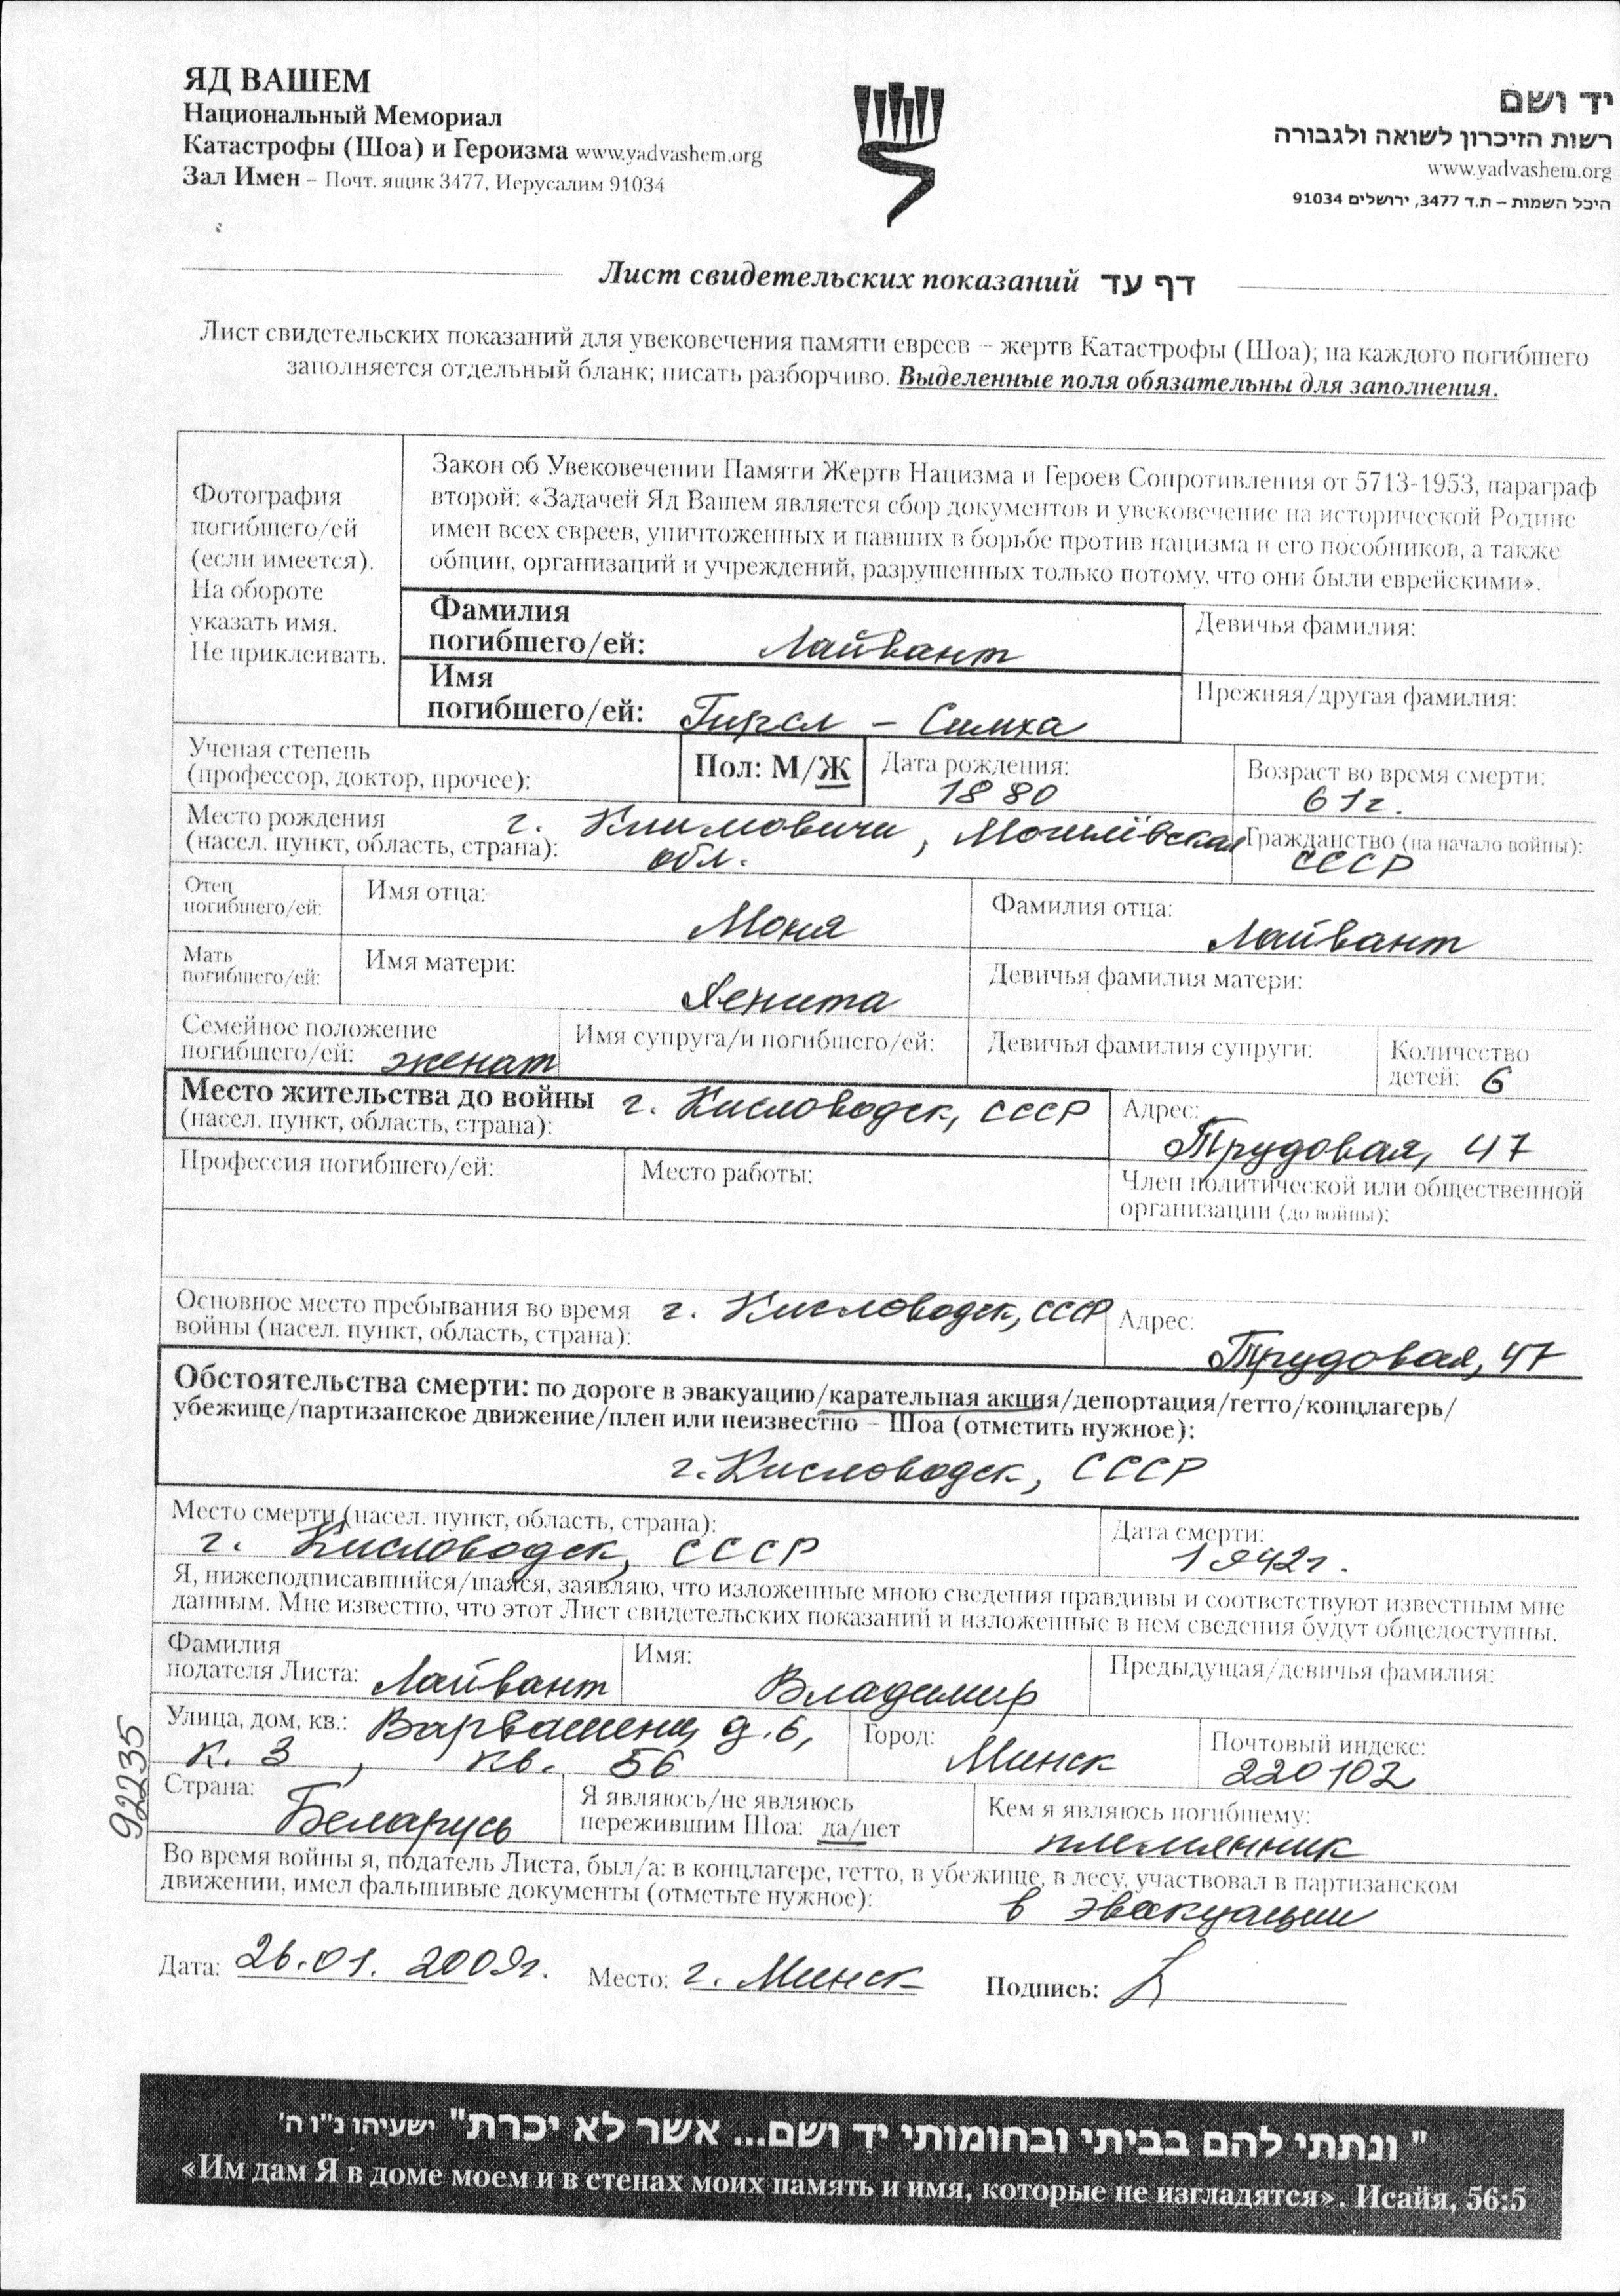 ЯД ВАШЕМ
Национальный Мемориал
Катастрофы (Шоа) и Героизма www.yadvashem.org
Зал Имен – Почт. ящик 3477, Иерусалим 91034
יד ושם
רשות הזיכרון לשואה ולגבורה
www.yadvashem.org
היכל השמות – ת.ד 3477, ירושלים 91034
Лист свидетельских показаний דף עד
Лист свидетельских показаний для увековечения памяти евреев – жертв Катастрофы (Шоа); на каждого погибшего
заполняется отдельный бланк; писать разборчиво. Выделенные поля обязательны для заполнения.
Фотография
погибшего/ей
(если имеется).
На обороте
указать имя.
Не приклеивать.
Закон об Увековечении Памяти Жертв Нацизма и Героев Сопротивления от 5713-1953, параграф
второй: «Задачей Яд Вашем является сбор документов и увековечение на исторической Родине
имен всех евреев, уничтоженных и павших в борьбе против нацизма и его пособников, а также
общин, организаций и учреждений, разрушенных только потому, что они были еврейскими».
Фамилия
погибшего/ей: Лайвант
Девичья фамилия:
Имя
погибшего/ей: Гирсл – Симха
Прежняя/другая фамилия:
Ученая степень
(профессор, доктор, прочее):
Пол: М/Ж
Дата рождения:
1880
Возраст во время смерти:
61г.
Место рождения г. Климовичи, Могилёвская
(насел. пункт, область, страна): обл.
Гражданство (на начало войны):
СССР
Отец
погибшего/ей:
Имя отца:
Моня
Фамилия отца:
Лайвант
Мать
погибшего/ей:
Имя матери:
Девичья фамилия матери:
Семейное положение
погибшего/ей: женат
Имя супруга/и погибшего/ей:
Девичья фамилия супруги:
Количество
детей: 6
Место жительства до войны г. Кисловодск, СССР
(насел. пункт, область, страна):
Адрес:
Трудовая, 47
Профессия погибшего/ей:
Место работы:
Член политической или общественной
организации (до войны):
Основное место пребывания во время г. Кисловодск, СССР
войны (насел. пункт, область, страна):
Адрес:
Трудовая, 47
Обстоятельства смерти: по дороге в эвакуацию/карательная акция/депортация/гетто/концлагерь/
убежище/партизанское движение/плен или неизвестно – Шоа (отметить нужное):
г. Кисловодск, СССР
Место смерти (насел. пункт, область, страна):
г. Кисловодск, СССР
Дата смерти:
1942г.
Я, нижеподписавшийся/шаяся, заявляю, что изложенные мною сведения правдивы и соответствуют известным мне
данным. Мне известно, что этот Лист свидетельских показаний и изложенные в нем сведения будут общедоступны.
Фамилия
подателя Листа: Лайвант
Имя:
Владимир
Предыдущая/девичья фамилия:
Улица, дом, кв.: Варвашени д.6,
к. 3, кв. 56
Город:
Минск
Почтовый индекс:
220102
Страна:
Беларусь
Я являюсь/не являюсь
пережившим Шоа: да/нет
Кем я являюсь погибшему:
племянник
Во время войны я, податель Листа, был/а: в концлагере, гетто, в убежище, в лесу, участвовал в партизанском
движении, имел фальшивые документы (отметьте нужное): в эвакуации
Дата: 26.01. 2009г. Место: г. Минск Подпись:
92235
" ונתתי להם בביתי ובחומותי יד ושם... אשר לא יכרת" ישעיהו נ"ו ה'
«Им дам Я в доме моем и в стенах моих память и имя, которые не изгладятся». Исайя, 56:5